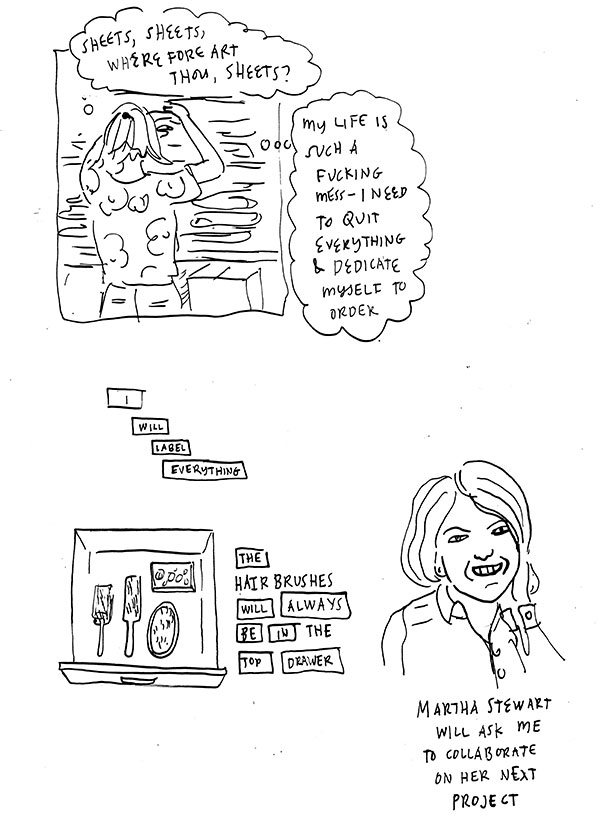 SHEETS, SHEETS,
WHEREFORE ART
THOU, SHEETS?
MY LIFE IS
SUCH A
FUCKING
MESS - I NEED
TO QUIT
EVERYTHING
& DEDICATE
MYSELF TO
ORDER
I
WILL
LABEL
EVERYTHING
THE
HAIRBRUSHES
WILL ALWAYS
BE IN THE
TOP DRAWER
MARTHA STEWART
WILL ASK ME
TO COLLABORATE
ON HER NEXT
PROJECT